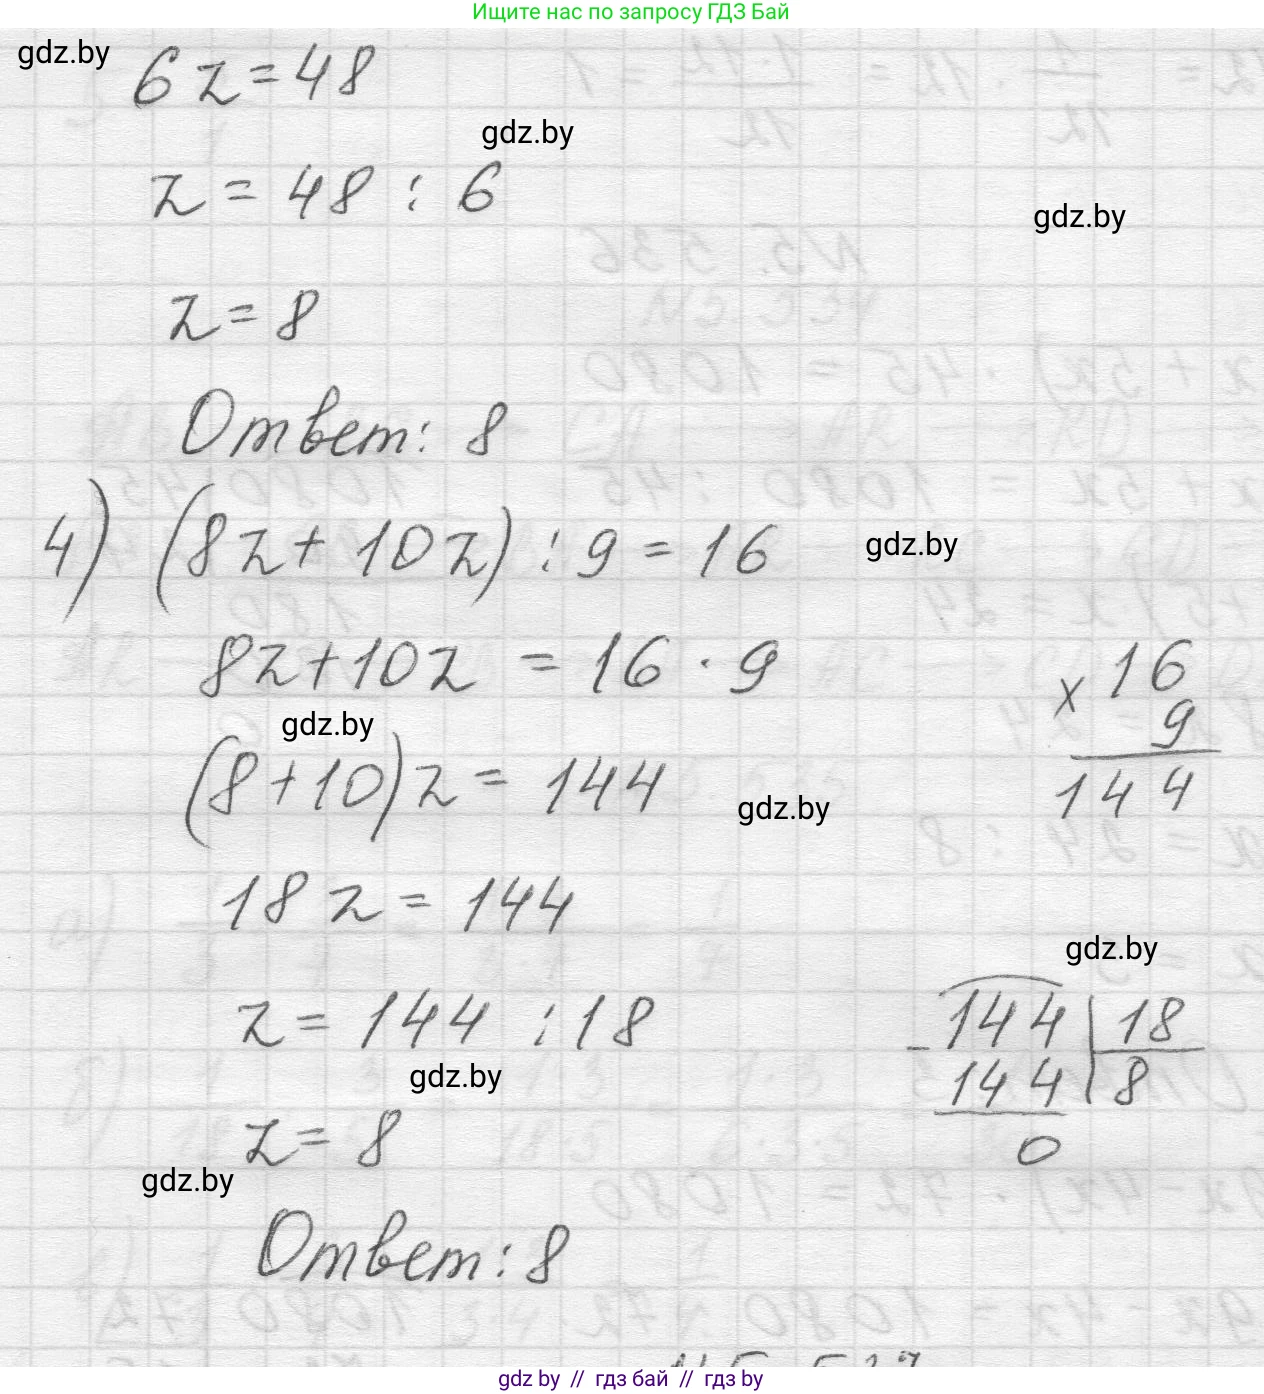 Ищите нас по запросу ГДЗ Бай
gdz.by
6z = 48
gdz.by
z = 48 : 6
gdz.by
z = 8
Ответ: 8
4) (8z + 10z) : 9 = 16
gdz.by
8z + 10z = 16 · 9
x 16
9
144
gdz.by
(8 + 10)z = 144
gdz.by
18z = 144
gdz.by
z = 144 : 18
- 144 | 18
144 | 8
0
gdz.by
z = 8
gdz.by
Ответ: 8
gdz.by // гдз бай // гдз by